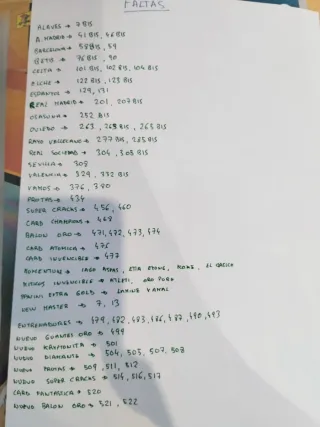 FALTAS
ALAVÉS → 7 BIS
A. MADRID → 41 BIS, 46 BIS
BARCELONA → 58 BIS, 59
BETIS → 76 BIS, 90
CELTA → 101 BIS, 102 BIS, 104 BIS
ELCHE → 122 BIS, 123 BIS
ESPANYOL → 129, 131
REAL MADRID → 201, 207 BIS
OSASUNA → 252 BIS
OVIEDO → 263, 265 BIS
RAYO VALLECANO → 277 BIS, 285 BIS
REAL SOCIEDAD → 304, 305 BIS
SEVILLA → 308
VALENCIA → 329, 332 BIS
VAMOS → 376, 380
PROTAS → 434
SUPER CRACKS → 456, 460
CARD CHAMPIONS → 468
BALON ORO → 471, 472, 473, 474
CARD ATOMICA → 476
CARD INVENCIBLE → 477
MOMENTUM → IAGO ASPAS, ETTA EYONG, KOKE, EL CLASICO
INVENCIBLE → ATLETI, ORO PURO
PANINI EXTRA GOLD → LAMINE YAMAL
NEW MASTER → 7, 13
ENTRENADORES → 479, 482, 483, 486, 487, 490, 493
NUEVO GUANTES ORO → 499
NUEVO KRYPTONITA → 501
NUEVO DIAMANTE → 504, 505, 507, 508
NUEVO PROTAS → 509, 511, 512
NUEVO SUPER CRACKS → 514, 516, 517
CARD FANTASTICA → 520
NUEVO BALON ORO → 521, 522